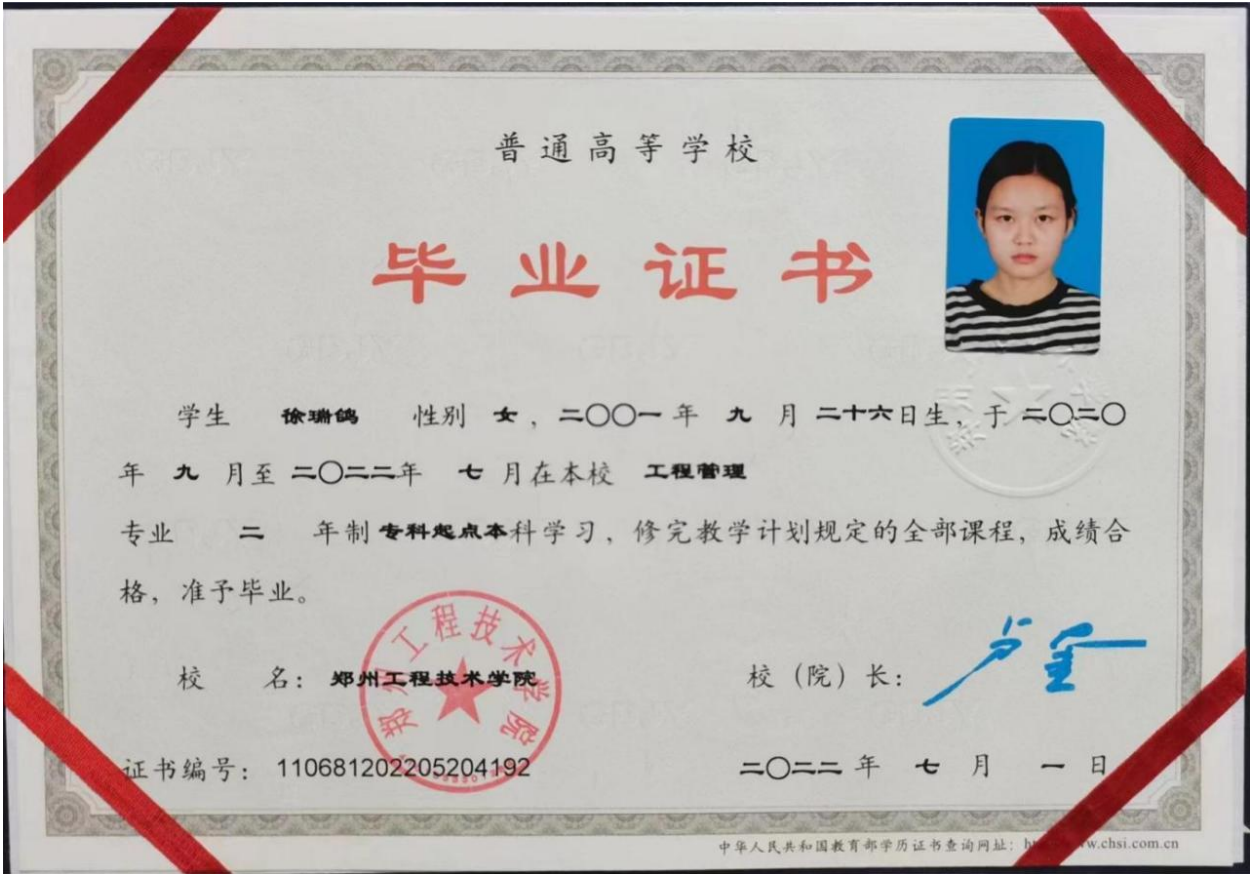 普通高等学校
毕业证书
学生 徐瑞鸽 性别 女，二〇〇一年 九 月 二十六日生，于 二〇二〇
年 九 月至 二〇二二年 七 月在本校 工程管理
专业 二 年制 专科起点本科学习，修完教学计划规定的全部课程，成绩合
格，准予毕业。
郑州工程技术学院
校 名：郑州工程技术学院 校（院）长：
证书编号：110681202205204192 二〇二二年 七 月 一 日
中华人民共和国教育部学历证书查询网址：w.chsi.com.cn